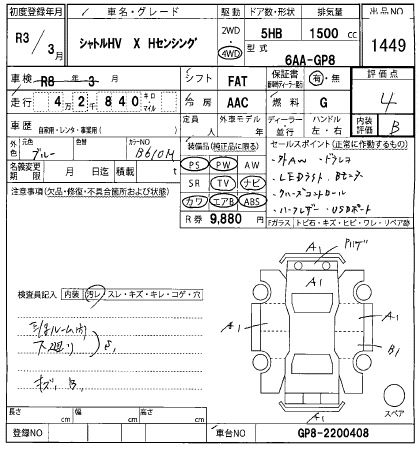 初度登録年月
車名・グレード
駆動
ドア数・形状
排気量
出品NO
R3/3月
シャトルHV X Hセンシング
2WD・4WD
5HB
1500 cc
1449
型式
6AA-GP8
車検
R8 年 3 月
シフト
FAT
保証書
有・無
評価点
4
走行
4万2千840 キロ・マイル
冷房
AAC
燃料
G
車歴
自家用・レンタ・事業用( )
定員
人
外車モデル
年
ディーラー
並行
ハンドル
左・右
内装評価
B
外色
元色
ブルー
色替
カラーNO
B610M
装備品(純正品に限る)
セールスポイント(正常に作動する物)
名義変更期限
月 日迄
積載
t
PS PW AW
・外AW ・ドラレコ
・LEDライト
注意事項(欠品・修復・不具合箇所および状態)
SR TV ナビ
・クルーズコントロール
カワ エアB ABS
・USBポート
R券 9,880 円
Fガラス トビ石・キズ・ヒビ・ワレ・リペア跡
検査員記入
内装 汚レ・スレ・キズ・キレ・コゲ・穴
下廻り
S1
キズ、B1
A1
A1
A1
A1
B1
A1
スペア
長さ cm
幅 cm
高さ cm
登録NO
車台NO
GP8-2200408